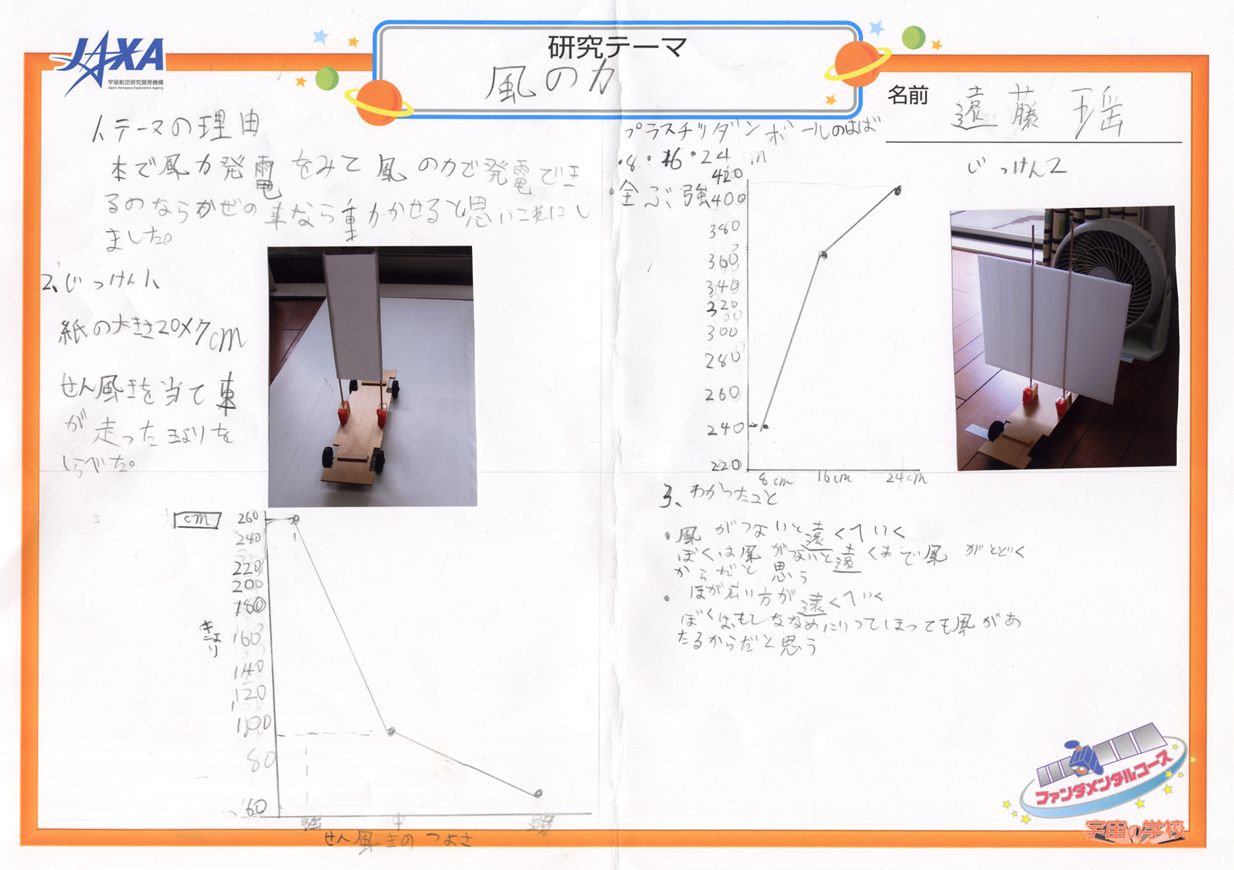 JAXA
宇宙航空研究開発機構
Japan Aerospace Exploration Agency
研究テーマ
風の力
名前
遠藤 瑶
1テーマの理由
本で風力発電をみて風の力で発電でき
るのならかぜの車なら動かせると思い
ました。
2、じっけん1、
紙の大きさ20×7cm
せん風きを当て車
が走ったきょりを
しらべた。
cm
260
240
220
200
180
160
140
120
100
80
60
きょり
強
中
弱
せん風きのつよさ
プラスチックダンボールのはば
・8・16・24cm
・全ぶ強
じっけん2
420
400
380
360
340
320
300
280
260
240
220
8cm 16cm 24cm
3、わかったこと
・風がつよいと遠くへいく
ぼくは風がつよいと遠くまで風がとどく
からだと思う
・ほが広い方が遠くへいく
ぼくは、もしななめにいってしまっても風があ
たるからだと思う
ファンダメンタルコース
宇宙の学校